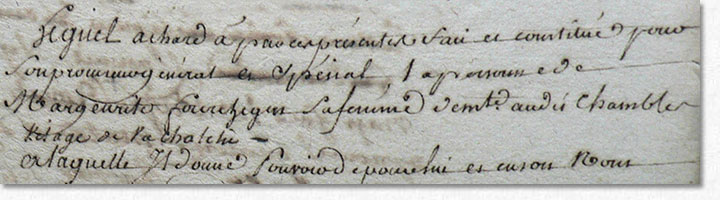 Lequel achard á par ces présentes fait et constitué pour
son procureur général et Spécial la personne de
Marguerite sa femme demt audit Chambles
vilage de
et laquelle Il donne Pouvoir de pour lui et en son Nom